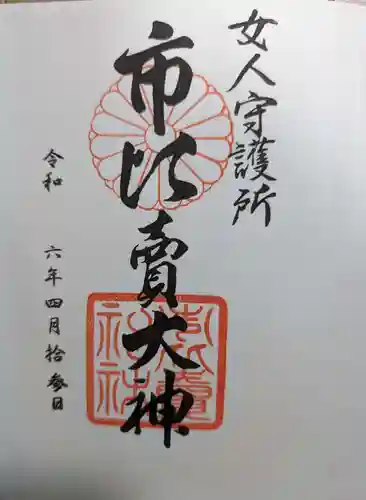 女人守護所
市比賣大神
令和 六年四月拾参日